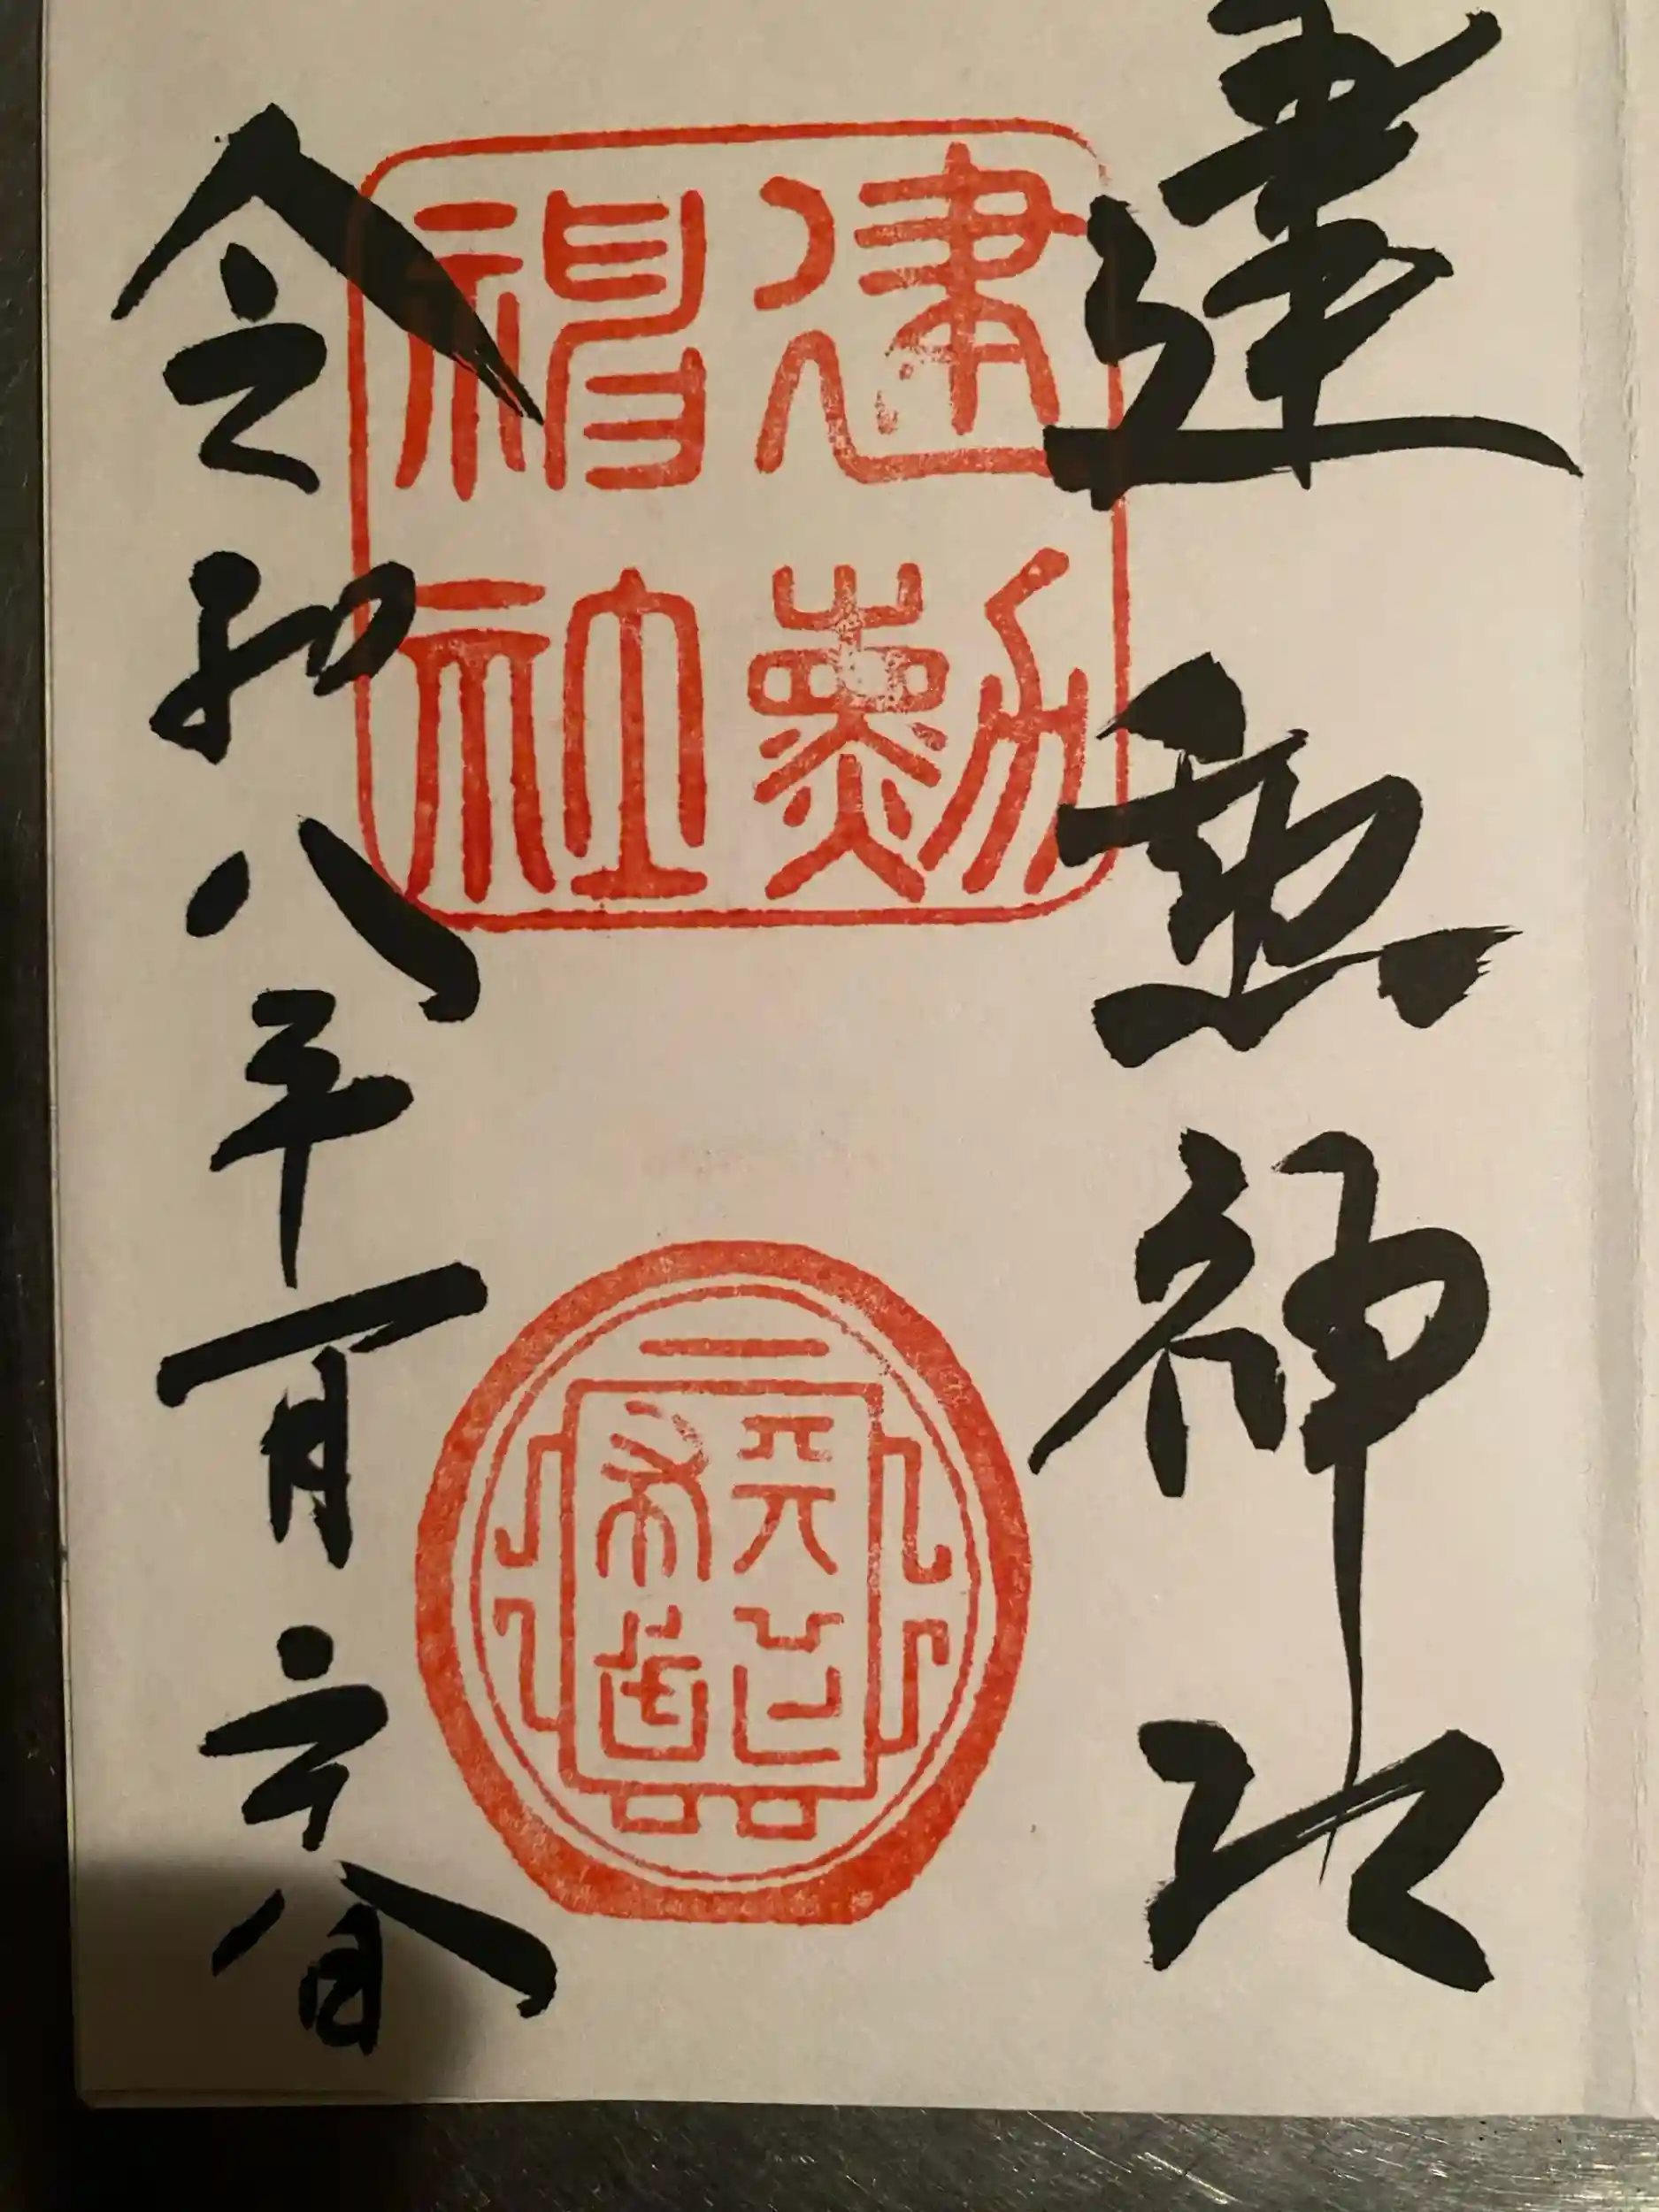 建勲神社
建勲
神社
天下
布武
令和八年一月二十八日